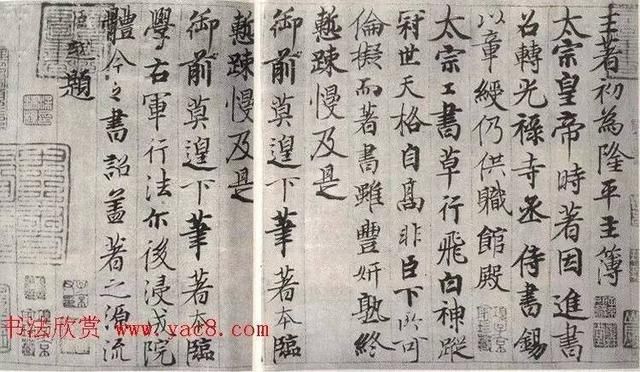 王著初為隆平主簿
太宗皇帝時著因進書
召轉光祿寺丞侍書錫
以章綬仍供職館殿
太宗工書草行飛白神蹤
冠世天格自高非臣下所可
倫擬而著書雖豐妍熟終
慙疎慢及是
御前莫遑下筆著本臨
慙疎慢及是
御前莫遑下筆著本臨
學右軍行法尓後浸成院
體今之書詔蓋著之源流
越題
书法欣赏 www.yac8.com